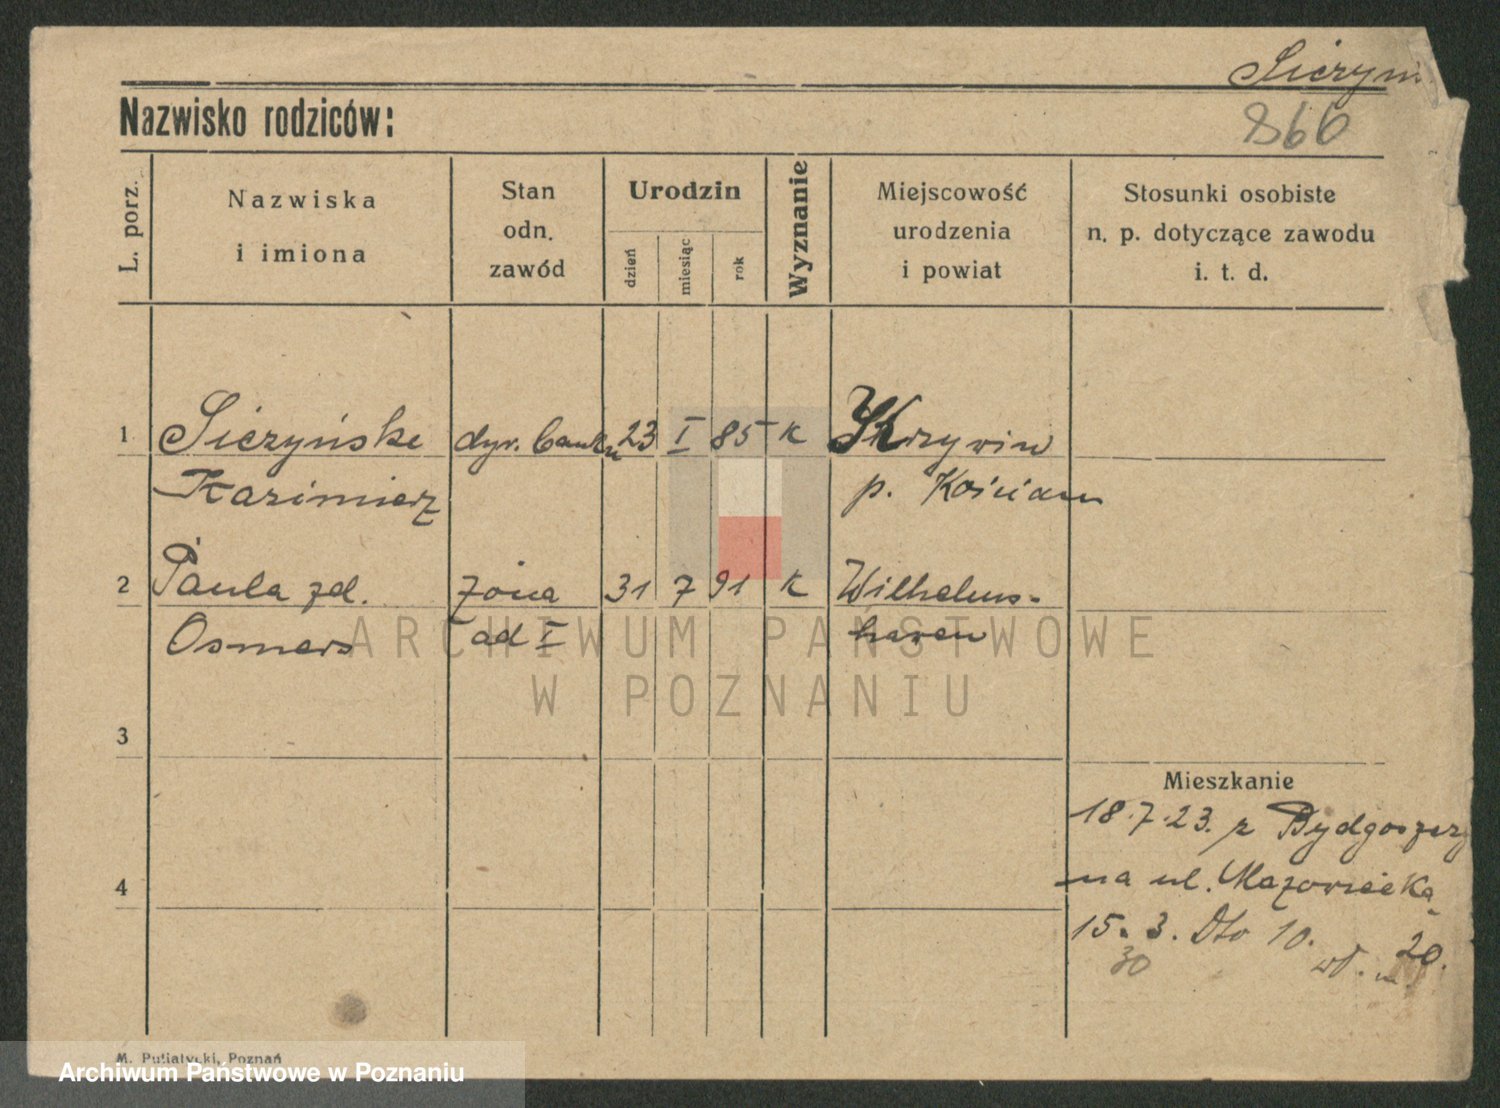 Sieżyń
Nazwisko rodziców:
866
L. porz.
Nazwiska
i imiona
Stan
odn.
zawód
Urodzin
dzień
miesiąc
rok
Wyznanie
Miejscowość
urodzenia
i powiat
Stosunki osobiste
n. p. dotyczące zawodu
i. t. d.
1 Sieżyńske dyr. banku 23 I 85 K Krzywin
Kazimierz p. Kościan
2 Paula zd. żona 31 7 91 K Wilhelms-
Osmers ad I haven
3
Mieszkanie
18.7.23. z Bydgoszczy
4
na ul. Mazowiecką
15. 3. Dto 10.
30 20.
M. Putiatycki, Poznań
ARCHIWUM PAŃSTWOWE
W POZNANIU
Archiwum Państwowe w Poznaniu